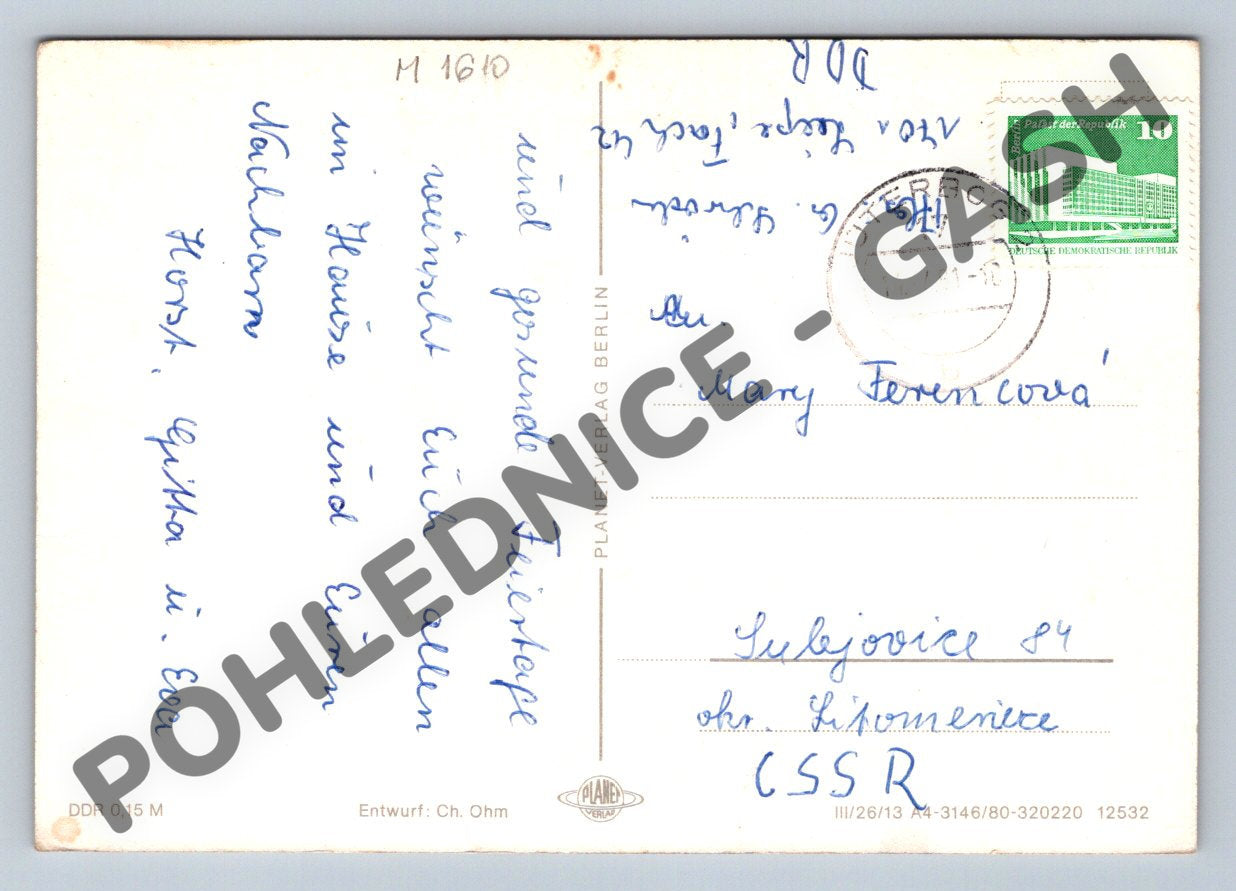 M 1610
und gesunde Feiertage
wünscht Euch allen
im Hause und Euren
Nachbarn
Horst, Gitta u. Eva
DDR
Fach 42
G.
An
Mary Ferencová
Sulejovice 84
okr. Litomerice
CSSR
PLANET-VERLAG BERLIN
Berlin Palast der Republik 10
DEUTSCHE DEMOKRATISCHE REPUBLIK
POHLEDNICE - GASH
DDR 0,15 M
Entwurf: Ch. Ohm
PLANET
VERLAG
III/26/13 A4-3146/80-320220 12532